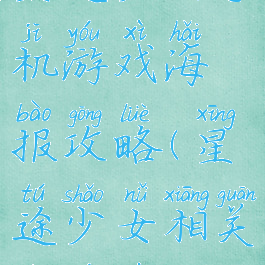 jī yóu xì hǎi
机游戏海
bào gōng lüè xīng
报攻略(星
tú shǎo nǚ xiāng guān
途少女相关